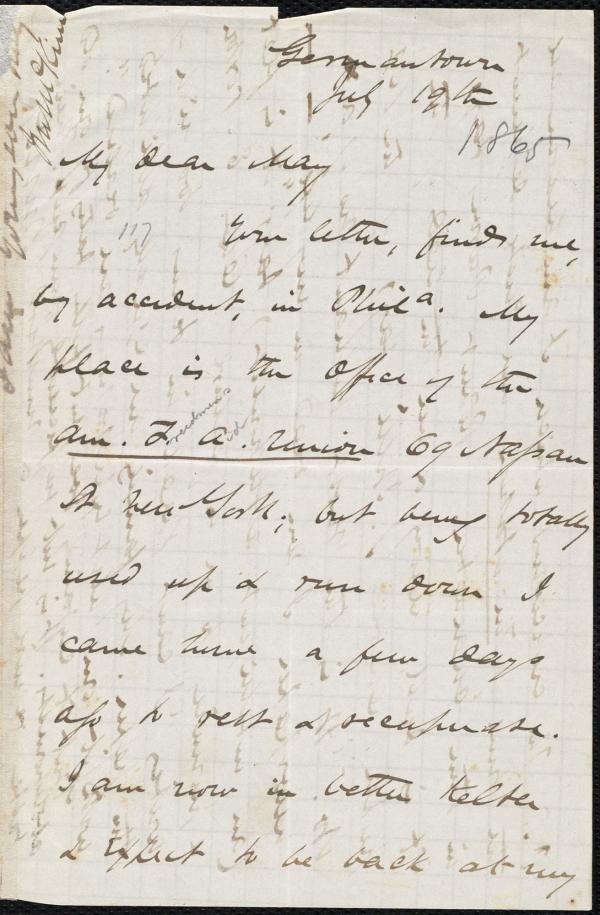 Germantown
July 19th
1865
My dear May
117
Your letter, finds me,
by accident, in Phila. My
place is the office of the
Am. F. A. Union 69 Nassau
reedmen's id
St New York; but being totally
used up & run down I
came home a few days
ago to rest & recuperate.
I am now in better kelter
& expect to be back at my
I am yours sincerely
J M McKim